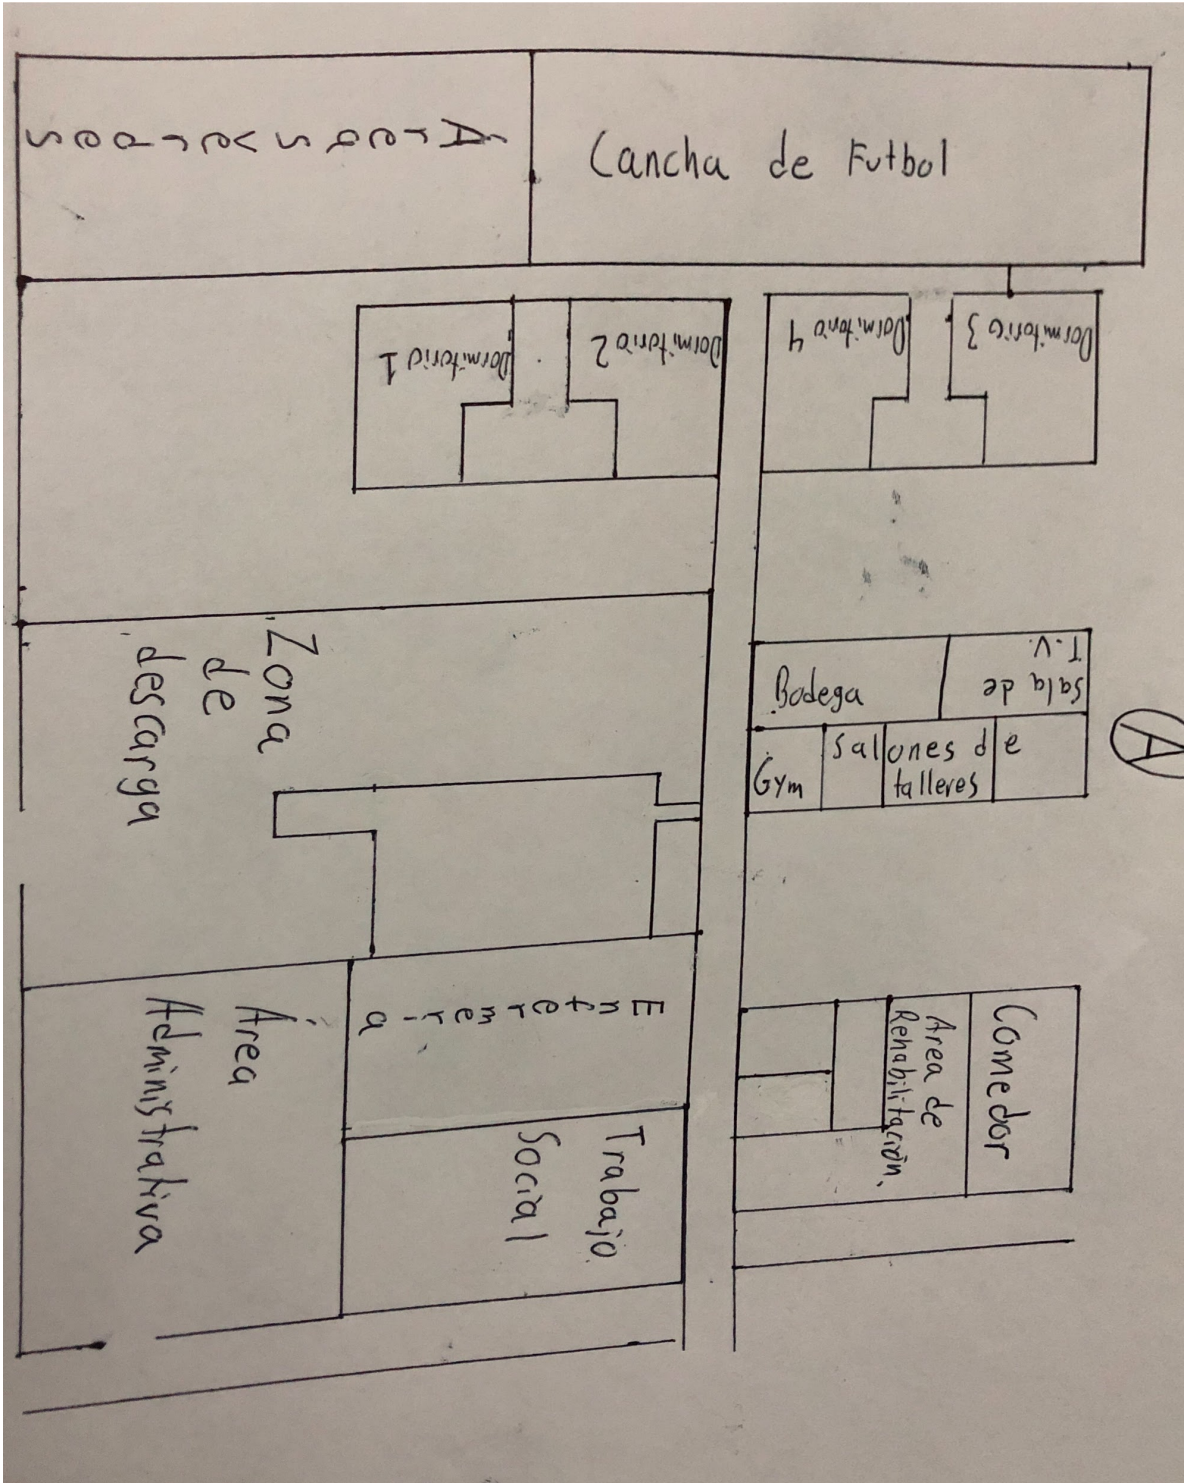 Áreas verdes
Cancha de Futbol
Dormitorio 1
Dormitorio 2
Dormitorio 4
Dormitorio 3
Zona
de
descarga
Bodega
Sala de
T.V.
Gym
Salones de
talleres
A
Área
Administrativa
Enfermeria
Trabajo
Social
Area de
Rehabilitación.
Comedor